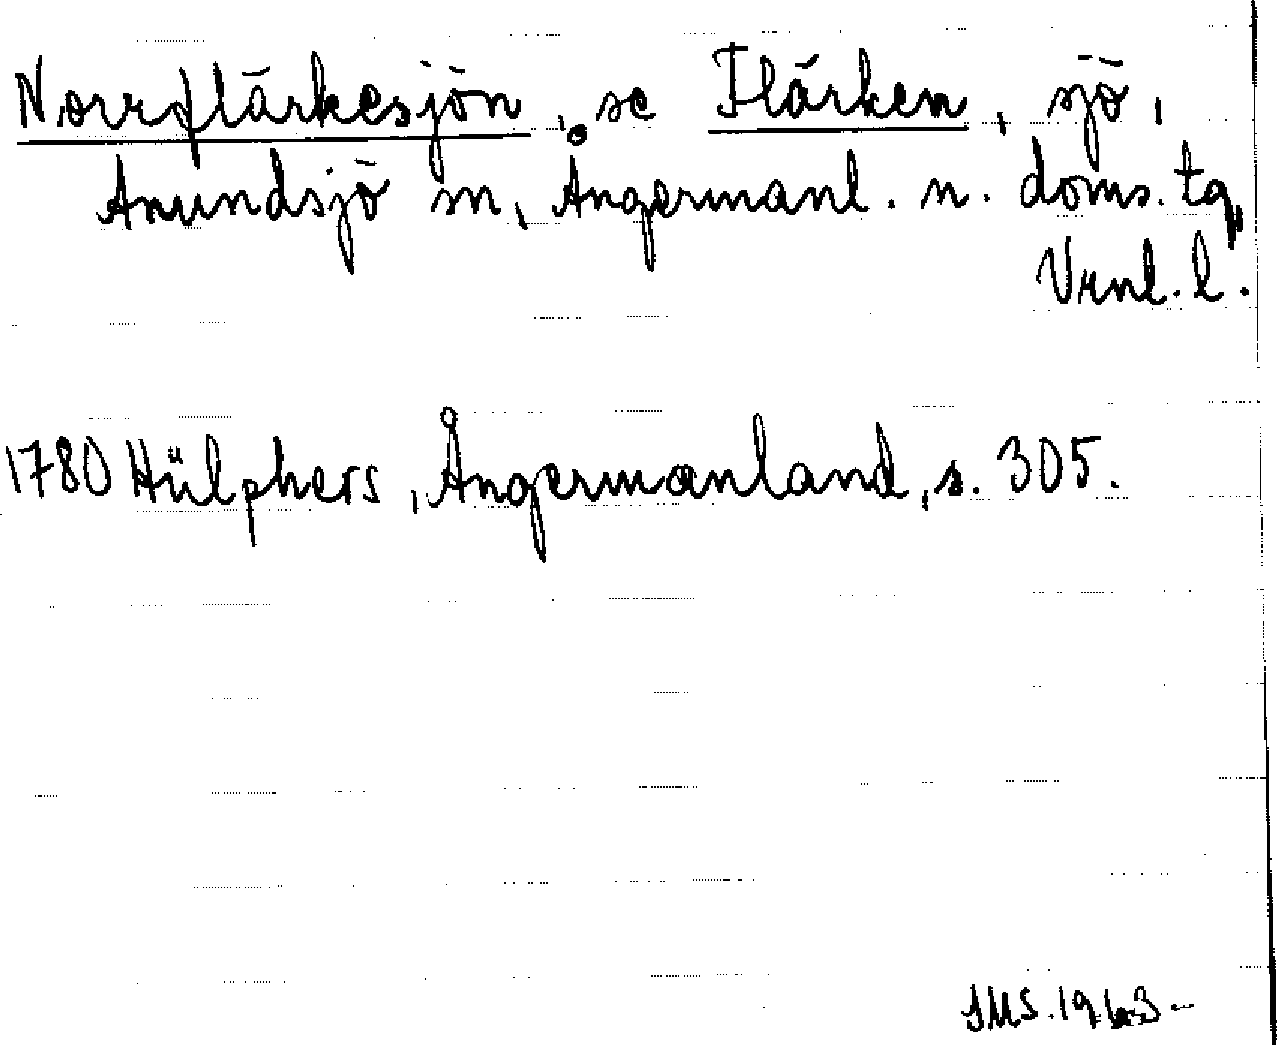 Norrflärkesjön, se Flärken, sjö,
Anundsjö sn, Ångermanl. n. doms. tg,
Vrnl. l.
1780 Hülphers, Ångermanland, s. 305.
1963